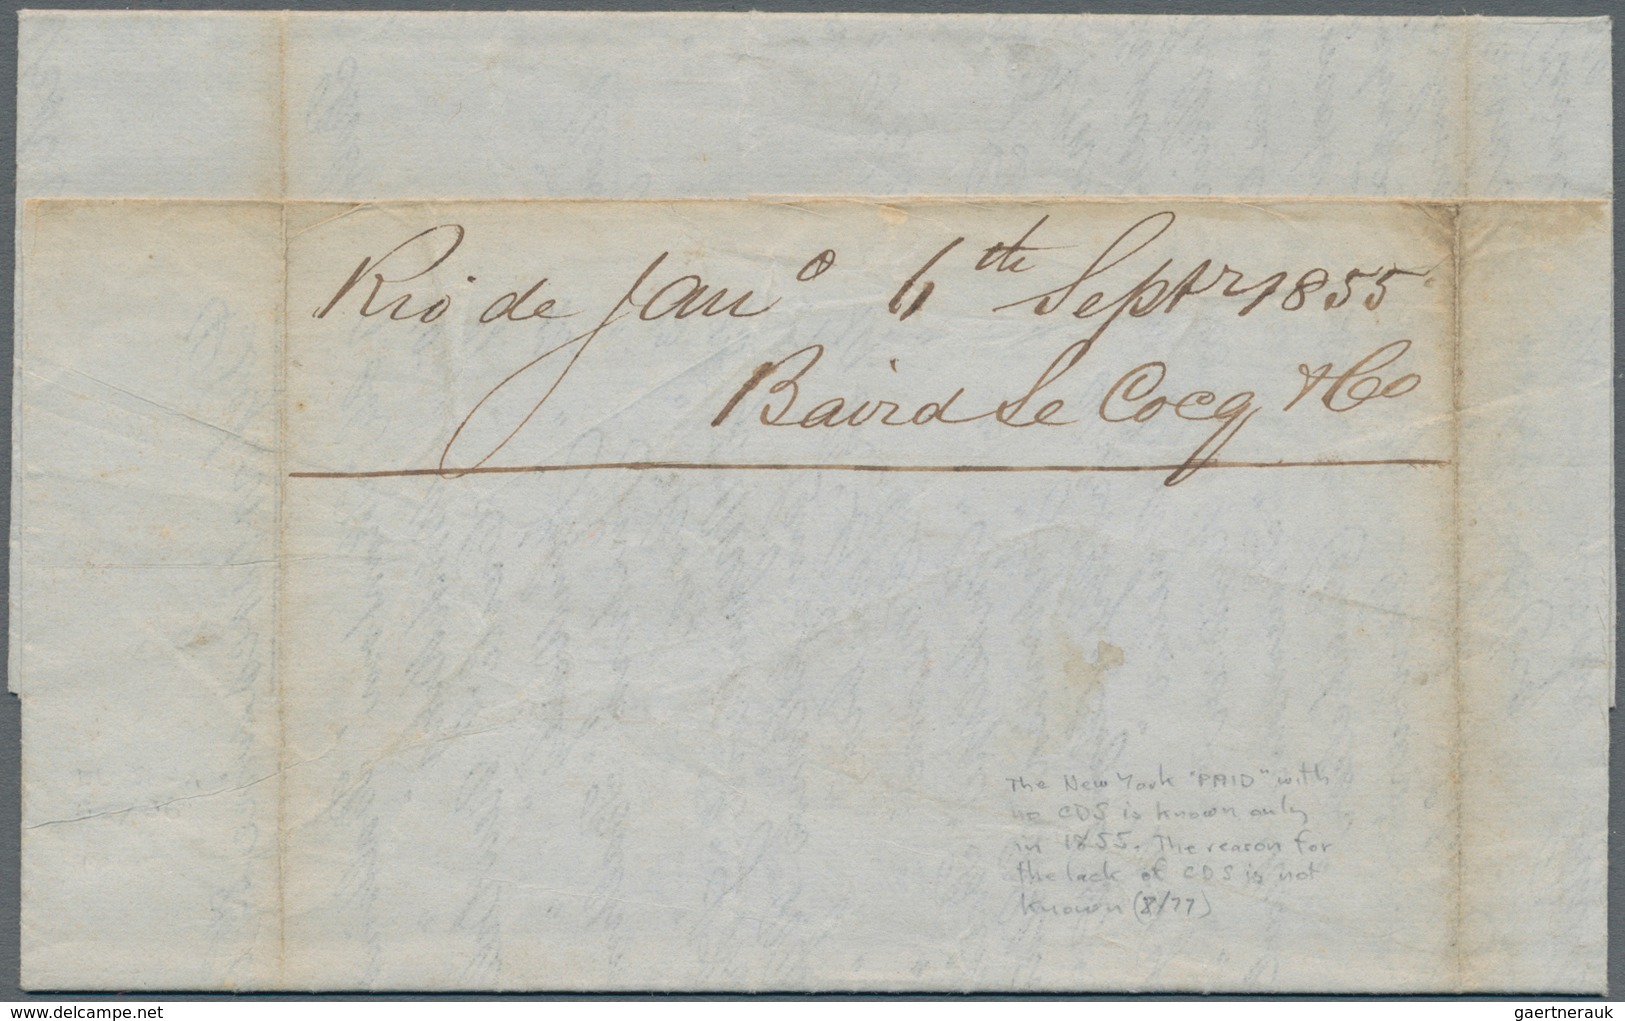 Rio de Janº 6th Septr 1855
Baird Le Cocq & Co
The New York "PAID" with
no CDS is known only
in 1855. The reason for
the lack of CDS is not
known (8/77)
delcampe.net
gaertnerauk